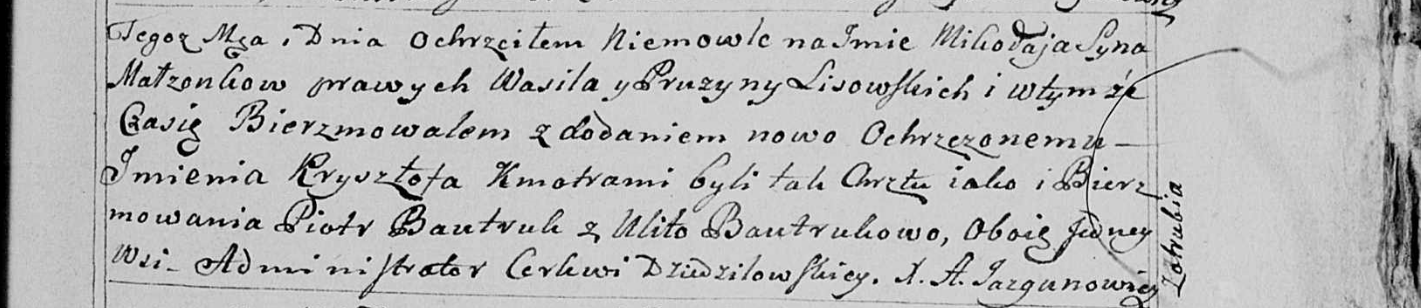 Tegoż Mca, Dnia Ochrzciłem Niemowle na Jmie Mikołaja Syna
Małżonkow prawych Wasila y Pruzyny Lisowskich i wtymże
Czasię Bierzmowałem z dodaniem nowo Ochrzczonemu —
Jmienia Krysztofa Kmotrami byli tak Chrztu iako i Bierz
mowania Piotr Bautruk z Ulito Bautrukowo, oboie Jedney
Wsi — Administrator Cerkwi Dziedziłowskiey. X. A. Jazgunowicz
Zatrubia